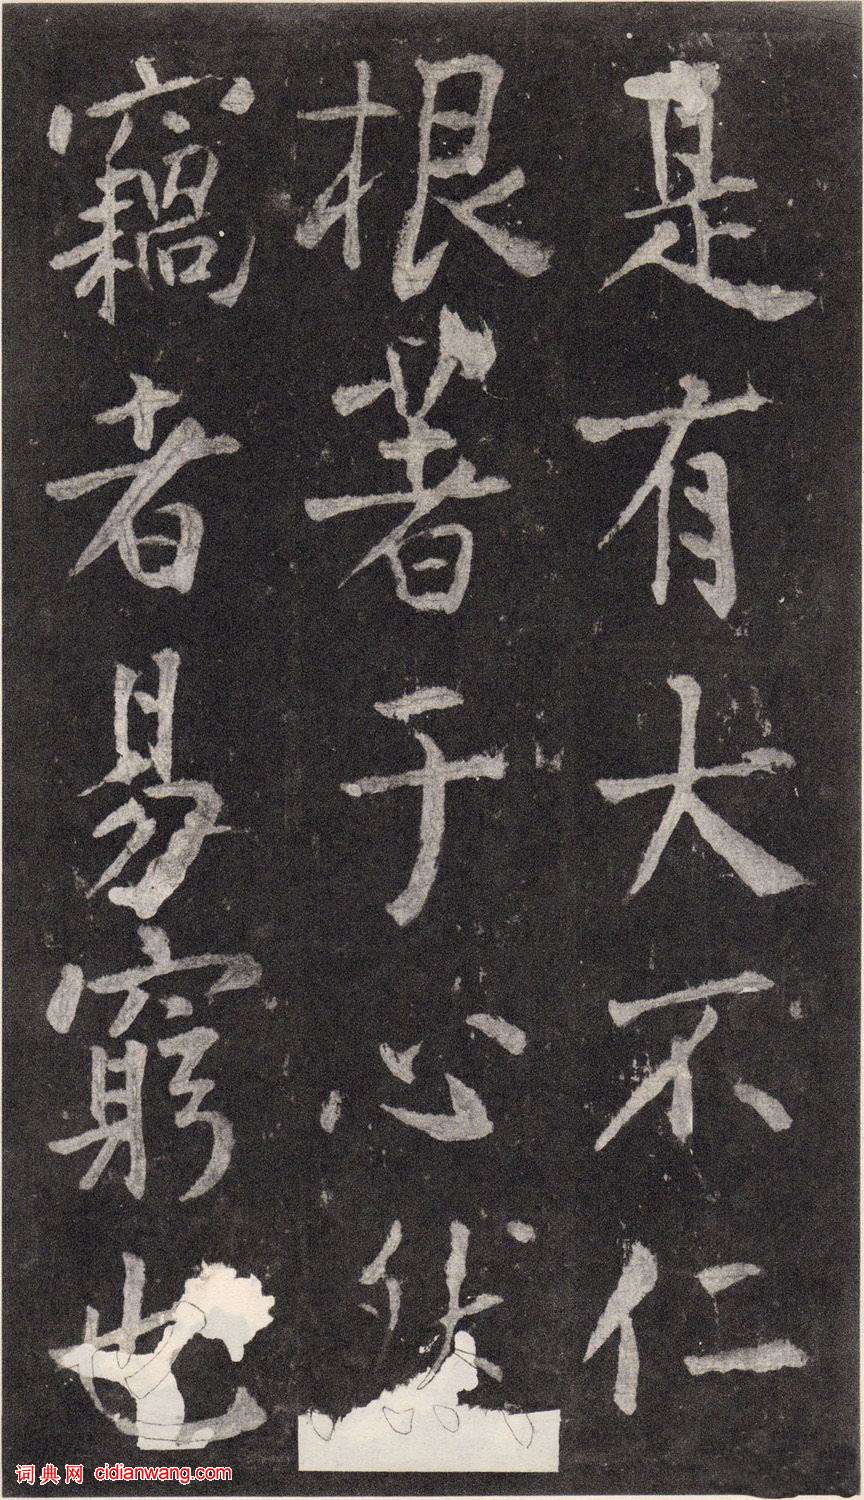 是有大不仁
根著于心然
竊者易窮也
词典网 cidianwang.com